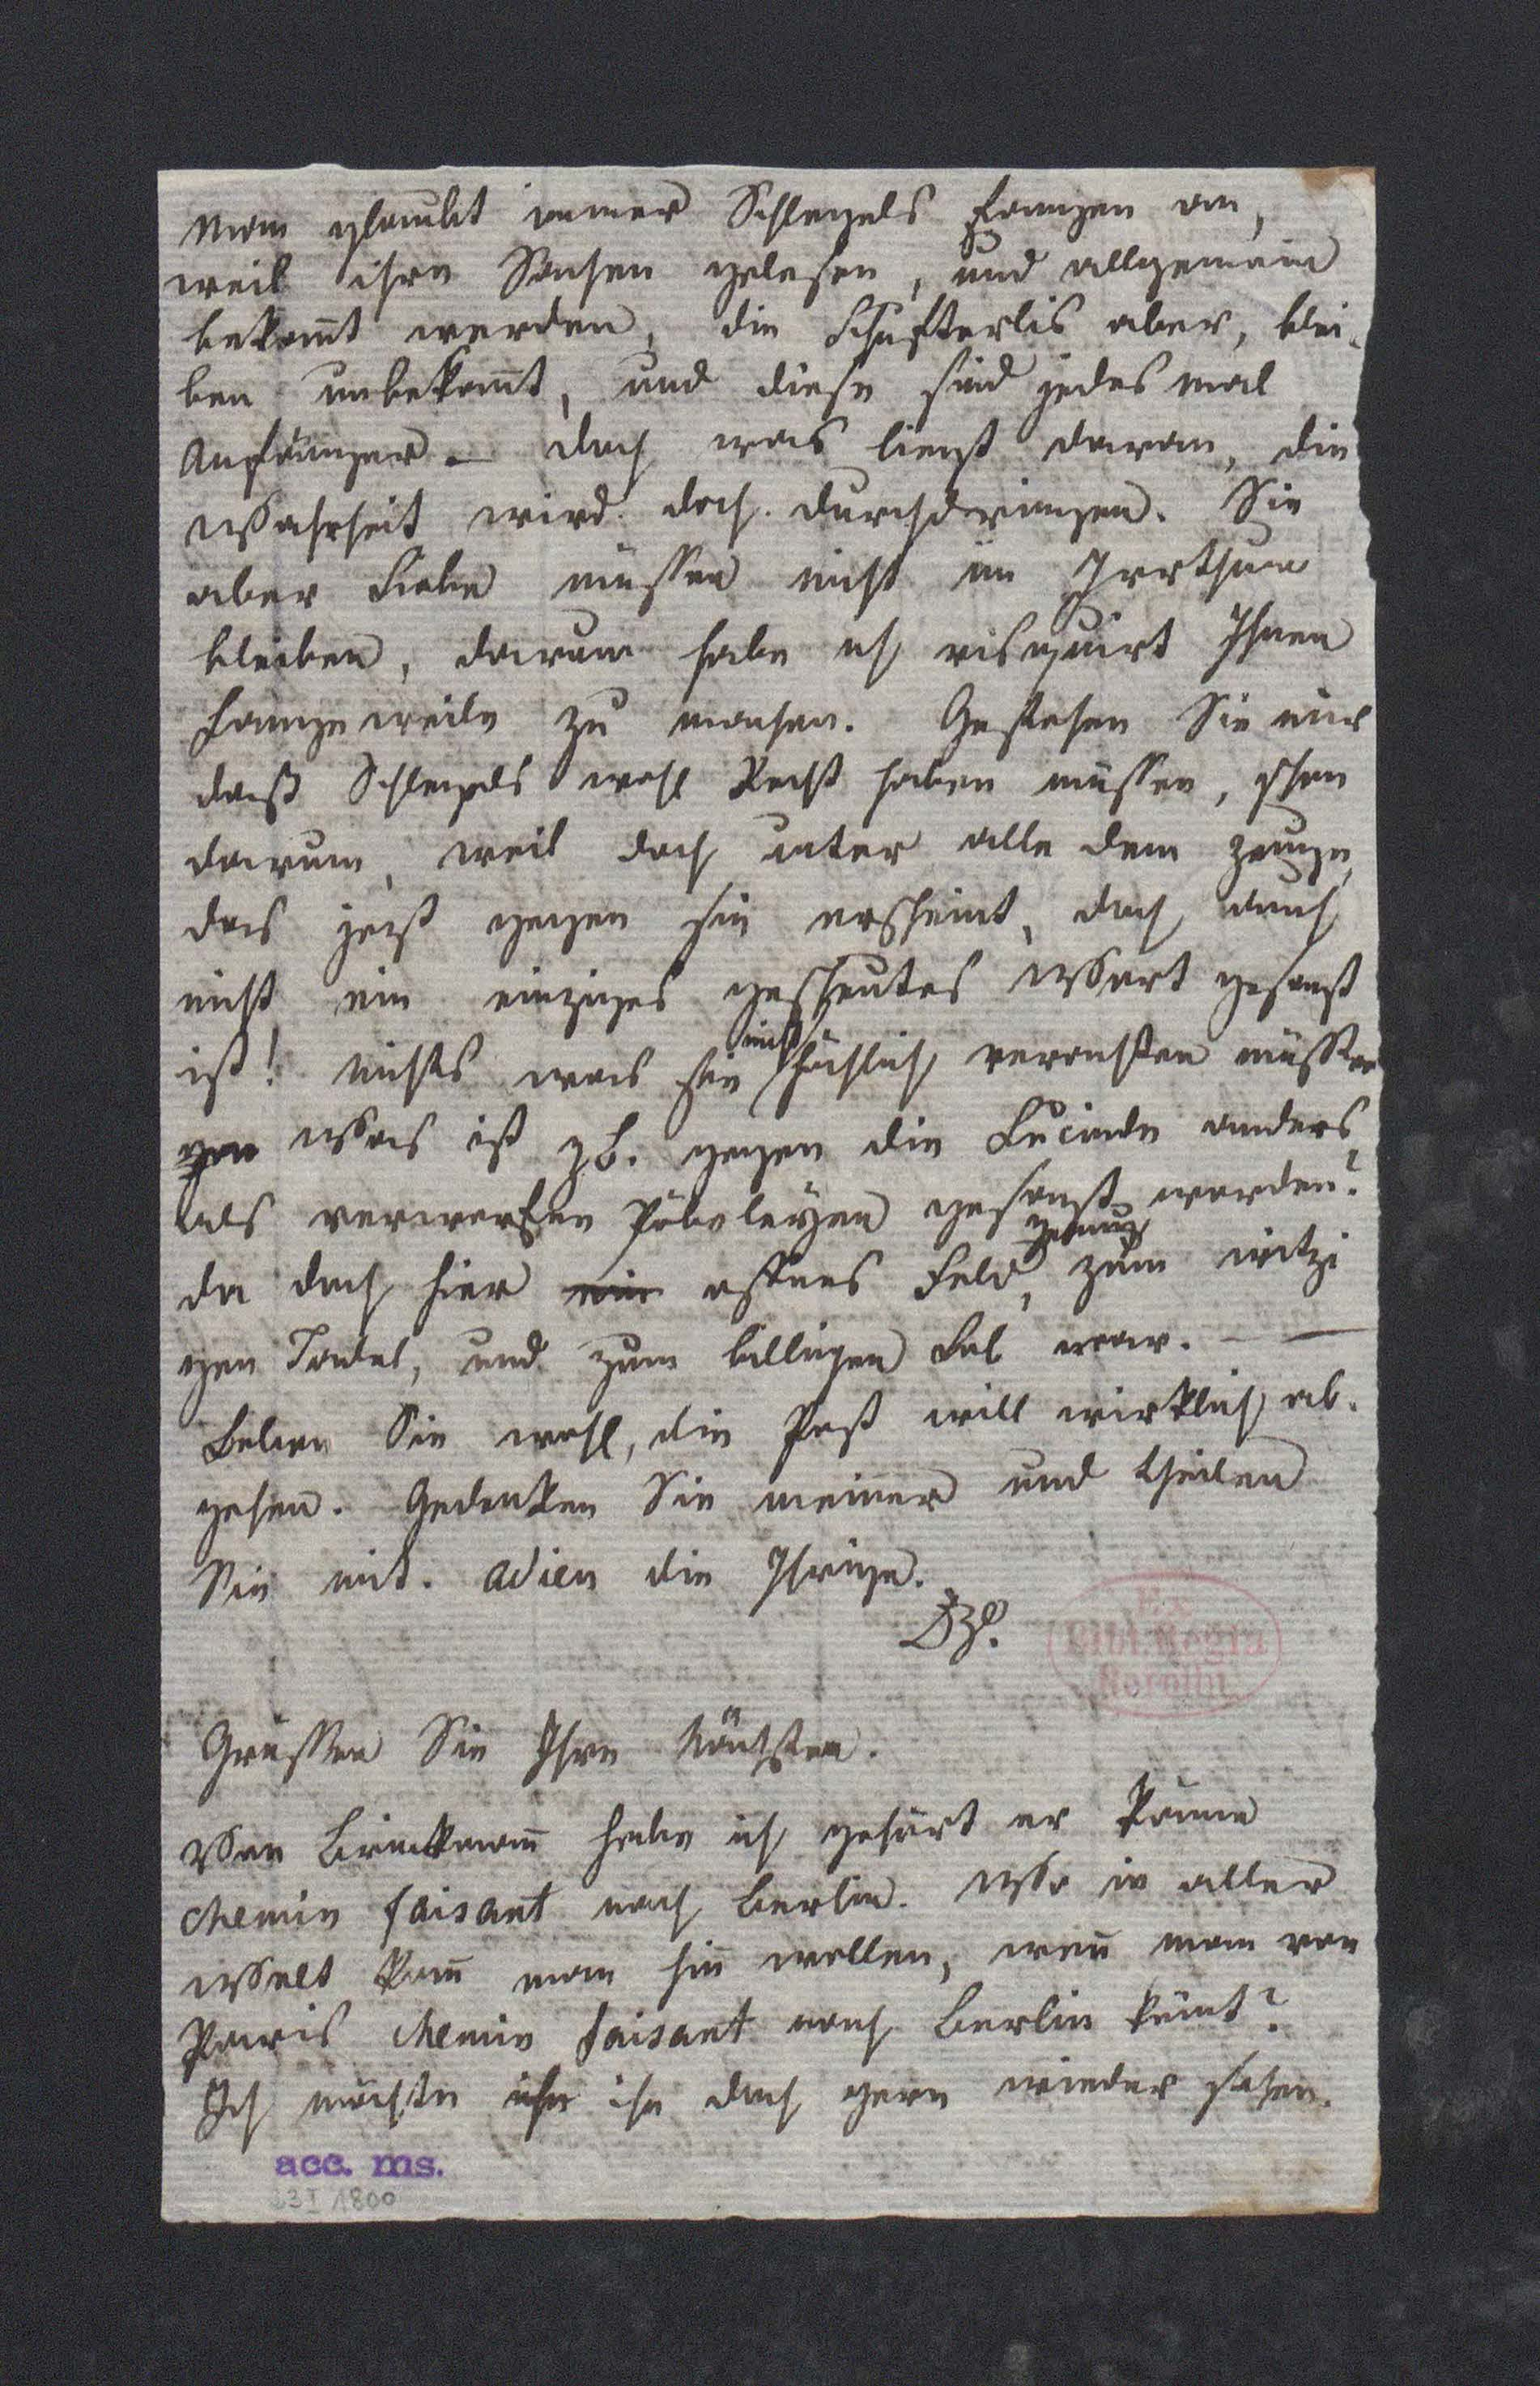 Man glaubt immer Schlegels fangen an,
weil ihre Sachen gelesen, und allgemein
bekañt werden, die Schufterlis aber, blei-
ben unbekañt, und diese sind jedes mal
Anfänger — doch was liegt daran, die
Wahrheit wird doch durchdringen. Sie
aber Liebe müssen nicht im Irrthum
bleiben, darum habe ich risquirt Ihnen
Langeweile zu machen. Gestehen Sie nur
daß Schlegels wohl Recht haben müssen, schon
darum, weil doch unter alle dem Zeuge,
das jezt gegen sie erscheint, doch auch
nicht ein einziges gescheutes Wort gesagt
ist! nichts was sie nicht höchlich verachten müssten
gen Was ist z b. gegen die Lucinde anders,
als verworfene Pöbeleyen gesagt worden?
da doch hier ein offenes Feld, genug zum witzi
gen Tadel, und zum billigen Lob war. — —
Leben Sie wohl, die Post will wirklich ab-
gehen. Gedenken Sie meiner und theilen
Sie mit. adieu die Ihrige.
Grüssen Sie Ihre Nächsten.
Von Brinkmañ habe ich gehört er käme
chemin faisant nach Berlin. Wo in aller
Welt kañ man hin wollen, weñ man von
Paris chemin faisant nach Berlin köm̃t?
Ich möchte ihn ihn doch gern wieder sehen.
Ex
Bibl. Regia
Berolin.
acc. ms.
3 I 1800